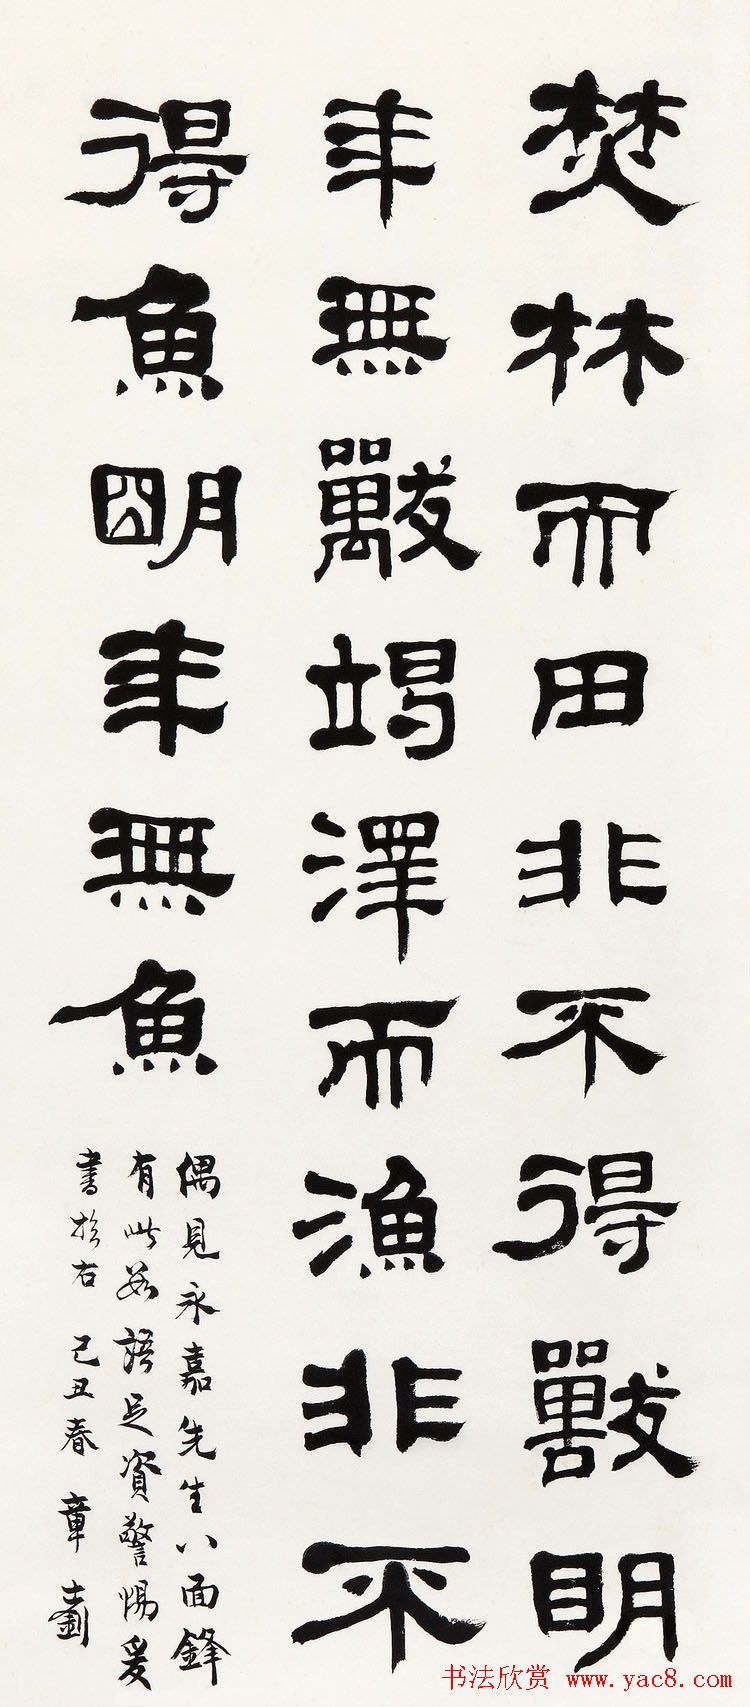 焚林而田非不得獸明
年無獸竭澤而漁非不
得魚明年無魚
偶見永嘉先生八面鋒
有此數語足資警惕爰
書於右 己丑春 章士釗
书法欣赏 www.yac8.com